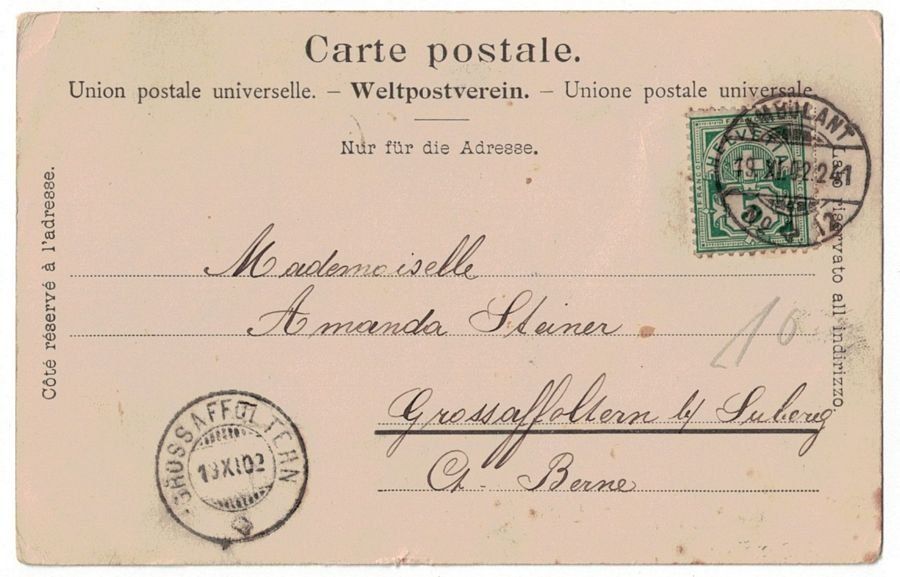 Carte postale.
Union postale universelle. – Weltpostverein. – Unione postale universale.
Nur für die Adresse.
Côté réservé à l'adresse.
Lato riservato all'indirizzo.
AMBULANT
19.XI.02.241
No 12
HELVETIA
FRANCO
5
Mademoiselle
Amanda Steiner
Grossaffoltern b/ Suberg
Ct. Berne
10
GROSSAFFOLTERN
19XI02